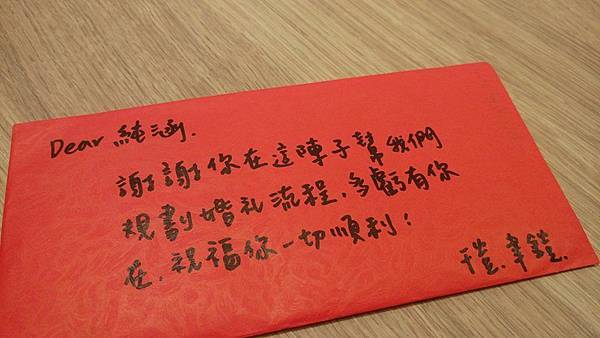 Dear 純涵.
謝謝你在這陣子幫我們
規劃婚礼流程,多虧有你
在,祝福你一切順利!